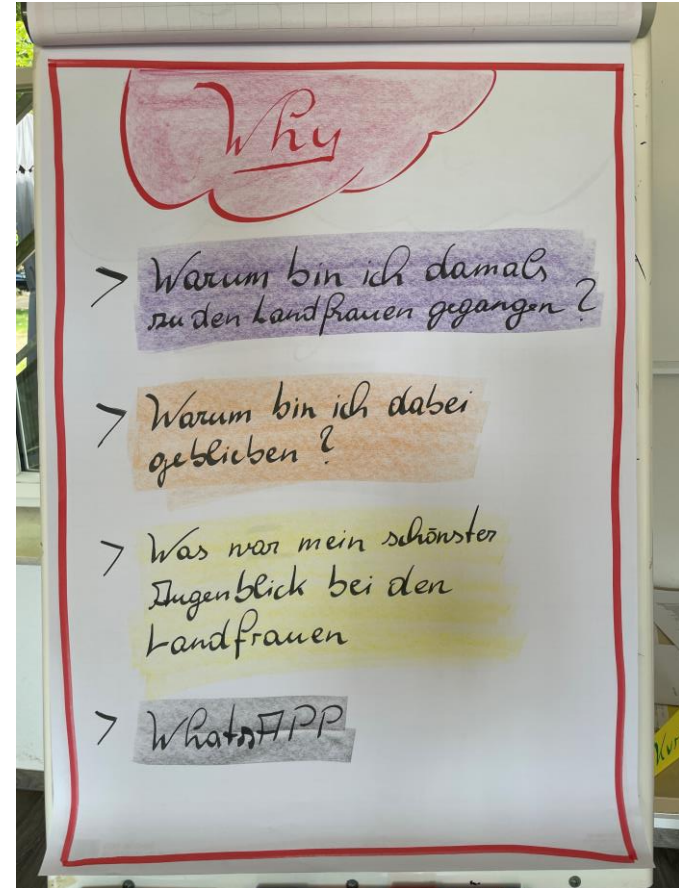 Why
> Warum bin ich damals
zu den Landfrauen gegangen?
> Warum bin ich dabei
geblieben?
> Was war mein schönster
Augenblick bei den
Landfrauen
> WhatsAPP